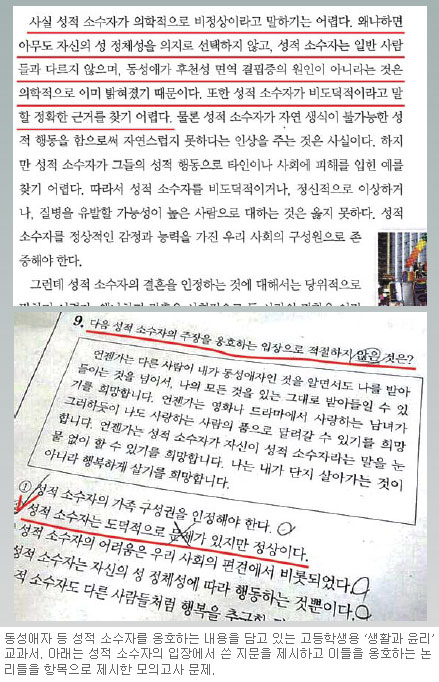 사실 성적 소수자가 의학적으로 비정상이라고 말하기는 어렵다. 왜냐하면
아무도 자신의 성 정체성을 의지로 선택하지 않고, 성적 소수자는 일반 사람
들과 다르지 않으며, 동성애가 후천성 면역 결핍증의 원인이 아니라는 것은
의학적으로 이미 밝혀졌기 때문이다. 또한 성적 소수자가 비도덕적이라고 말
할 정확한 근거를 찾기 어렵다. 물론 성적 소수자가 자연 생식이 불가능한 성
적 행동을 함으로써 자연스럽지 못하다는 인상을 주는 것은 사실이다. 하지
만 성적 소수자가 그들의 성적 행동으로 타인이나 사회에 피해를 입힌 예를
찾기 어렵다. 따라서 성적 소수자를 비도덕적이거나, 정신적으로 이상하거
나, 질병을 유발할 가능성이 높은 사람으로 대하는 것은 옳지 못하다. 성적
소수자를 정상적인 감정과 능력을 가진 우리 사회의 구성원으로 존
중해야 한다.
그런데 성적 소수자의 결혼을 인정하는 것에 대해서는 당위적으로
9. 다음 성적 소수자의 주장을 옹호하는 입장으로 적절하지 않은 것은?
언젠가는 다른 사람이 내가 동성애자인 것을 알면서도 나를 받아
들이는 것을 넘어서, 나의 모든 것을 있는 그대로 받아들일 수 있
기를 희망합니다. 언젠가는 영화나 드라마에서 사랑하는 남녀가
그러하듯이 나도 사랑하는 사람의 품으로 달려갈 수 있기를 희망
합니다. 언젠가는 성적 소수자가 자신이 성적 소수자라는 말을 눈
물 없이 할 수 있기를 희망합니다. 나는 내가 단지 살아가는 것이
아니라 행복하게 살기를 희망합니다.
① 성적 소수자의 가족 구성권을 인정해야 한다.
성적 소수자는 도덕적으로 문제가 있지만 정상이다.
성적 소수자의 어려움은 우리 사회의 편견에서 비롯되었다.
성적 소수자는 자신의 성 정체성에 따라 행동하는 것뿐이다.
적 소수자도 다른 사람들처럼 행복을 추구할
동성애자 등 성적 소수자를 옹호하는 내용을 담고 있는 고등학생용 '생활과 윤리'
교과서. 아래는 성적 소수자의 입장에서 쓴 지문을 제시하고 이들을 옹호하는 논
리들을 항목으로 제시한 모의고사 문제.